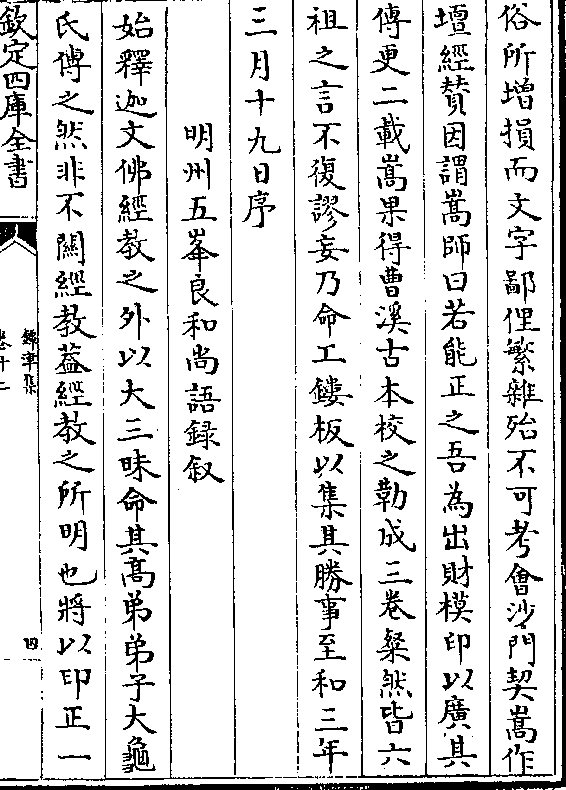 俗所增損而文字鄙俚繁雜殆不可考會沙門契嵩作
壇經賛因謂嵩師曰若能正之吾為出財模印以廣其
傳更二載嵩果得曹溪古本校之勒成三卷粲然皆六
祖之言不復謬妄乃命工鏤板以集其勝事至和三年
三月十九日序
明州五峯良和尚語録叙
始釋迦文佛經教之外以大三昧命其高弟弟子大龜
氏傳之然非不關經教葢經教之所明也將以印正一
欽定四庫全書
鐔津集
卷十二
四